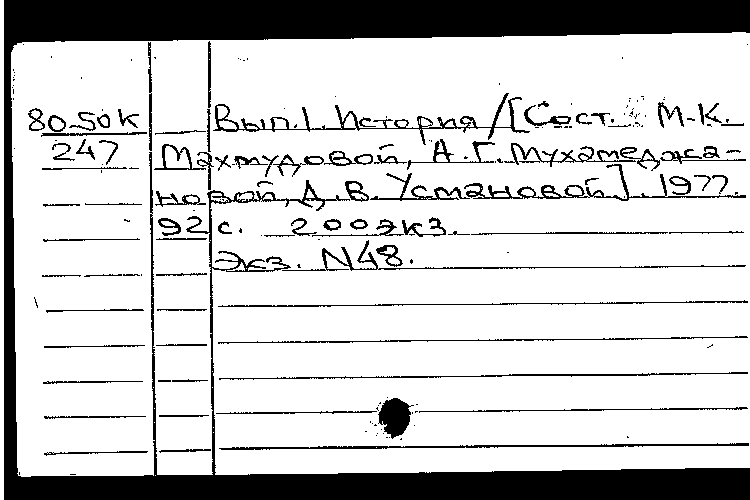 80-50К Вып.1. История /[Сост. М.К.
247 Махмудовой, А.Г. Мухамеджа-
новой, Д.В. Усмановой]. 1977.
92 с. 200экз.
Экз. N48.